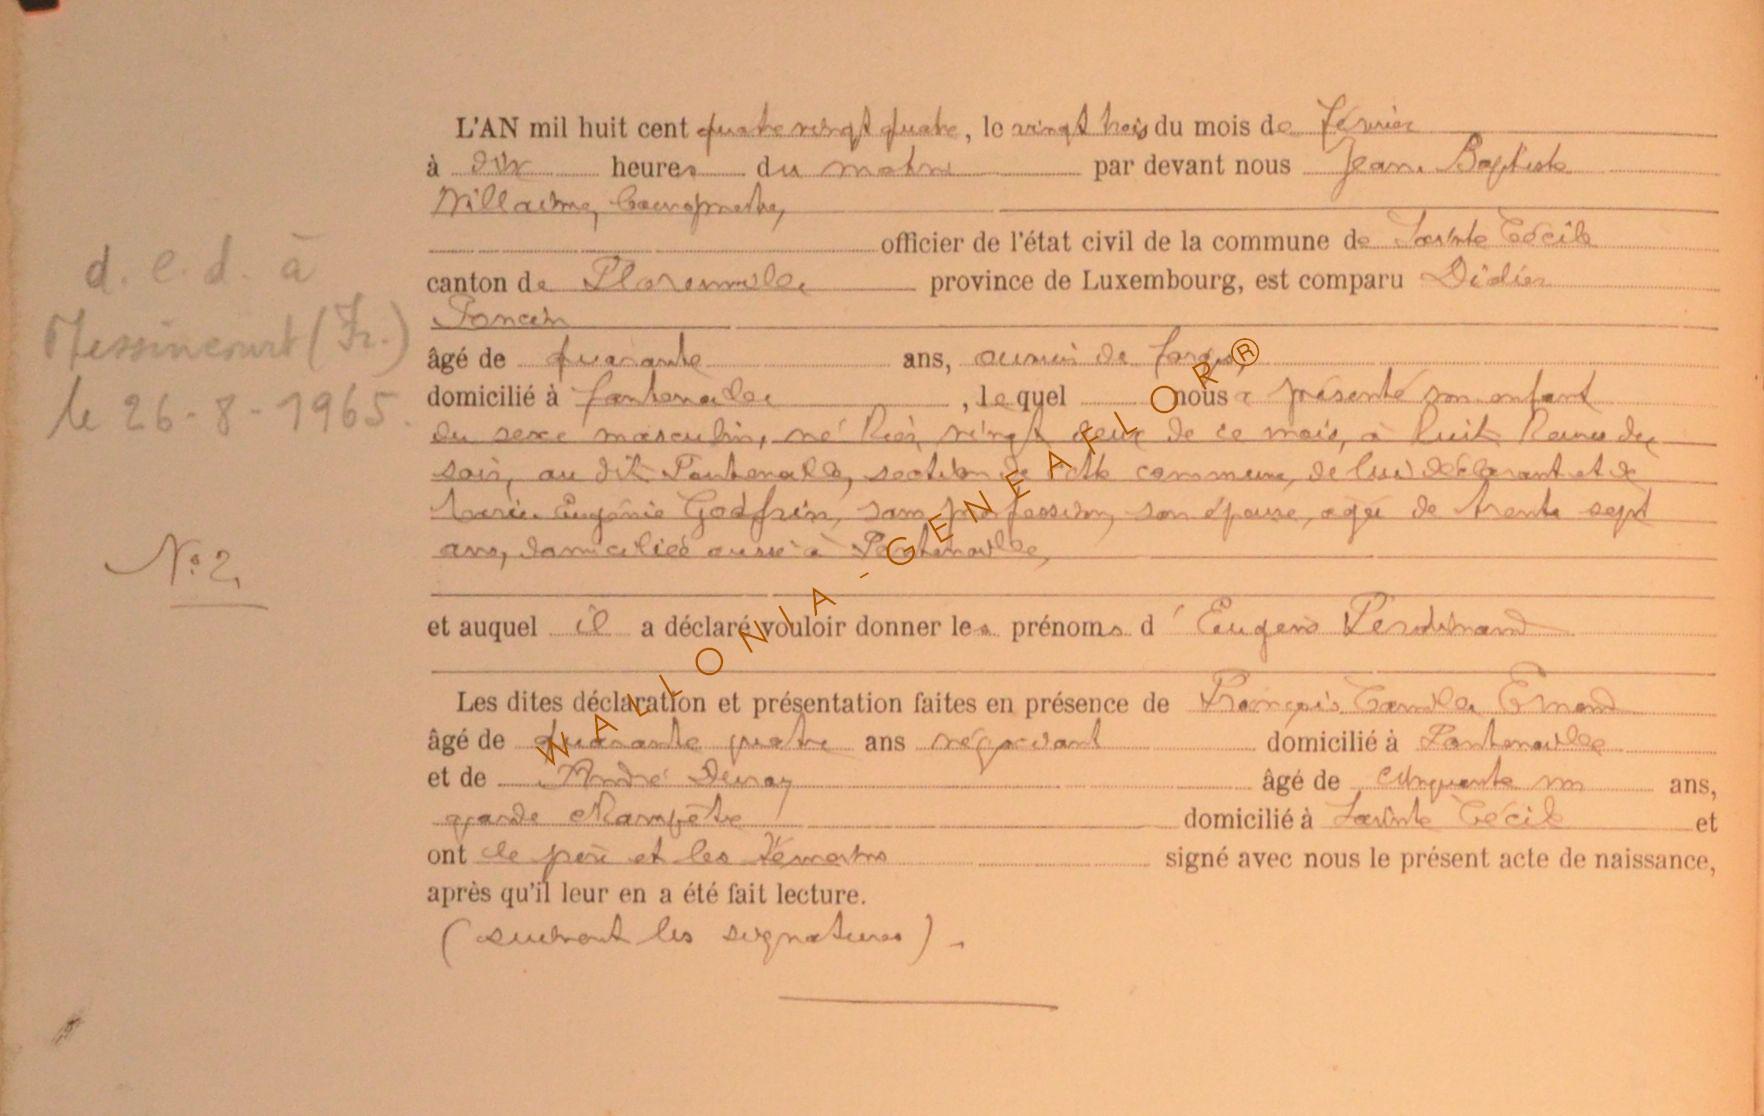 L'AN mil huit cent quatre vingt quatre, le vingt trois du mois de février
à dix heures du matin par devant nous Jean Baptiste
Willaime, Bourgmestre,
officier de l'état civil de la commune de Sainte Cécile
canton de Florenville province de Luxembourg, est comparu Didier
Poncin
âgé de quarante ans, ouvrier de forges,
domicilié à fontenaille, lequel nous a présenté son enfant
du sexe masculin, né hier, vingt deux de ce mois, à huit heures du
soir, au dit Fontenaille, section de cette commune, de lui déclarant et de
Marie Eugénie Godfrin, sans profession, son épouse, agée de trente sept
ans, domiciliée aussi à Fontenaille,
et auquel il a déclaré vouloir donner les prénoms d' Eugène Ferdinand
Les dites déclaration et présentation faites en présence de François Camille Emond
âgé de quarante quatre ans négociant domicilié à Fontenaille
et de André âgé de cinquante un ans,
garde champêtre domicilié à Sainte Cécile et
ont le père et les témoins signé avec nous le présent acte de naissance,
après qu'il leur en a été fait lecture.
(suivent les signatures).
d. c. d. à
Messincourt (Fr.)
le 26-8-1965.
N° 2,
WALLONIA-GENEAFLOR®